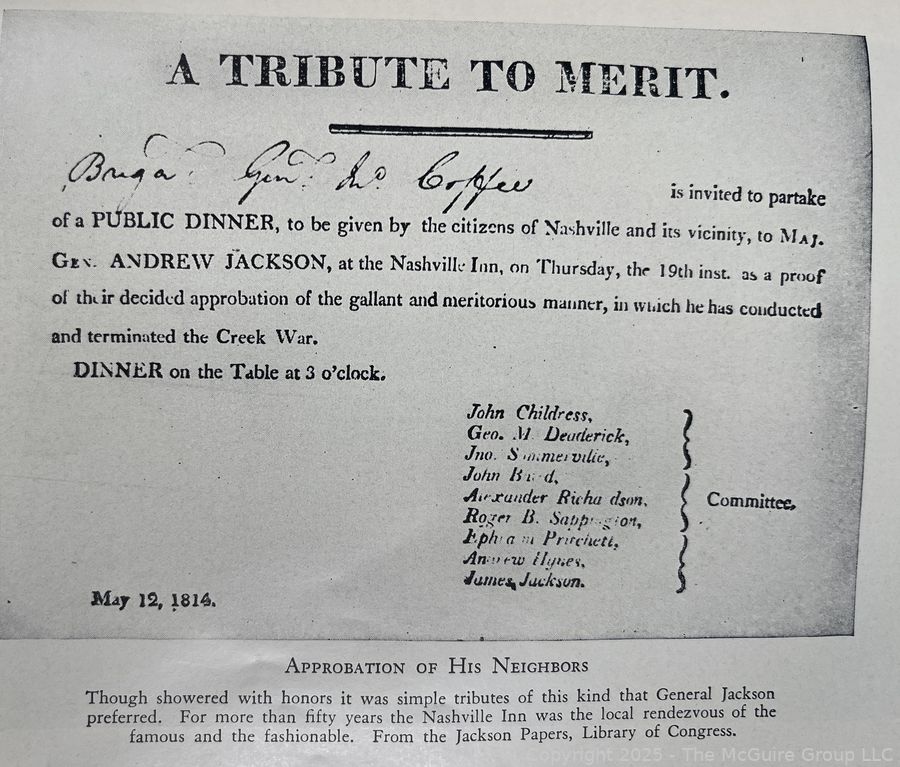 A TRIBUTE TO MERIT.
Brigar. Genl. Jno. Coffee is invited to partake
of a PUBLIC DINNER, to be given by the citizens of Nashville and its vicinity, to MAJ.
GEN. ANDREW JACKSON, at the Nashville Inn, on Thursday, the 19th inst. as a proof
of their decided approbation of the gallant and meritorious manner, in which he has conducted
and terminated the Creek War.
DINNER on the Table at 3 o'clock.
John Childress,
Geo. M. Deaderick,
Jno. Sommerville,
John
Alexander Richardson,
Roger B. Sappington,
Ephraim Pritchett,
Andrew Hynes,
James Jackson.
Committee.
May 12, 1814.
APPROBATION OF HIS NEIGHBORS
Though showered with honors it was simple tributes of this kind that General Jackson
preferred. For more than fifty years the Nashville Inn was the local rendezvous of the
famous and the fashionable. From the Jackson Papers, Library of Congress.
Copyright 2025 - The McGuire Group LLC